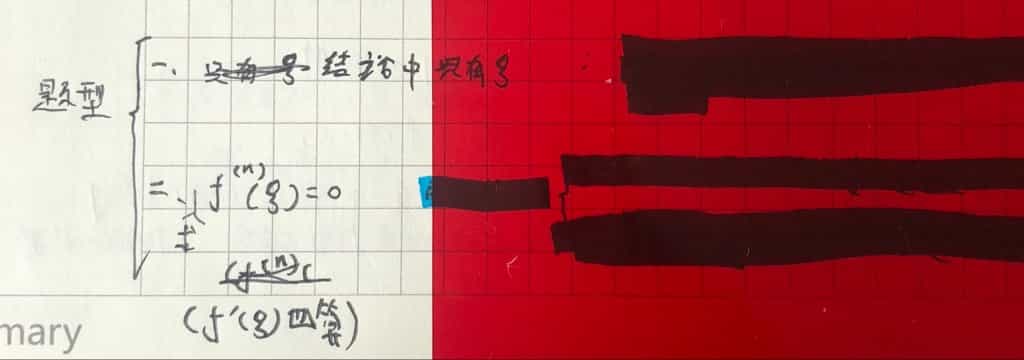 题型
一、只有ξ 结论中只有ξ
二、证 f⁽ⁿ⁾(ξ)=0
(f⁽ⁿ⁾(
(f'(ξ)四算)
mary